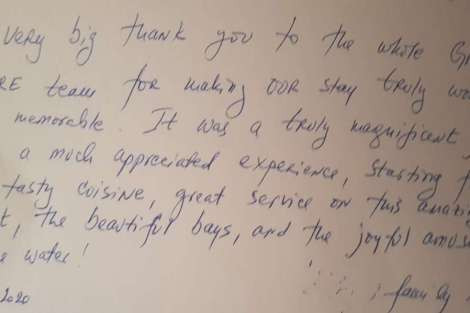 very big thank you to the whole
team for making our stay truly
memorable. It was a truly magnificent
a much appreciated experience, starting
tasty cuisine, great service on this amazing
, the beautiful bays, and the joyful
water!
2020 family